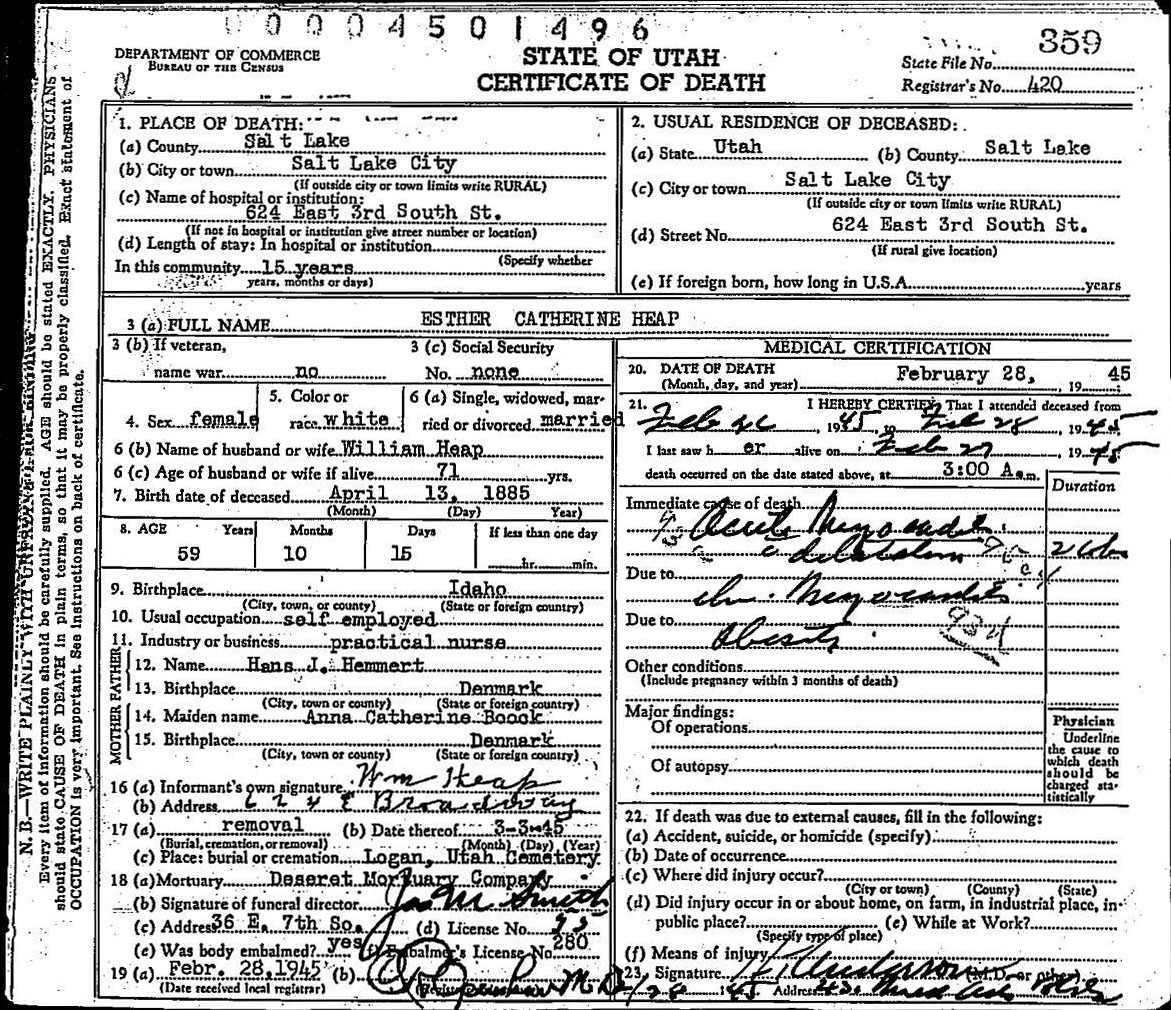 00004501496
DEPARTMENT OF COMMERCE
BUREAU OF THE CENSUS
STATE OF UTAH
CERTIFICATE OF DEATH
359
State File No.
Registrar's No. 420
N. B.—WRITE PLAINLY WITH
Every item of information should be carefully supplied. AGE should be stated EXACTLY. PHYSICIANS
should state CAUSE OF DEATH in plain terms, so that it may be properly classified. Exact statement of
OCCUPATION is very important. See instructions on back of certificate.
1. PLACE OF DEATH:
(a) County Salt Lake
(b) City or town Salt Lake City
(If outside city or town limits write RURAL)
(c) Name of hospital or institution:
624 East 3rd South St.
(If not in hospital or institution give street number or location)
(d) Length of stay: In hospital or institution
(Specify whether
In this community 15 years
years, months or days)
2. USUAL RESIDENCE OF DECEASED:
(a) State Utah (b) County Salt Lake
(c) City or town Salt Lake City
(If outside city or town limits write RURAL)
(d) Street No. 624 East 3rd South St.
(If rural give location)
(e) If foreign born, how long in U.S.A. years
3 (a) FULL NAME ESTHER CATHERINE HEAP
3 (b) If veteran, 3 (c) Social Security
name war no No. none
4. Sex female 5. Color or race white 6 (a) Single, widowed, married or divorced married
6 (b) Name of husband or wife William Heap
6 (c) Age of husband or wife if alive 71 yrs.
7. Birth date of deceased April 13, 1885
(Month) (Day) Year)
8. AGE Years Months Days If less than one day
59 10 15 hr. min.
9. Birthplace Idaho
(City, town, or county) (State or foreign country)
10. Usual occupation self employed
11. Industry or business practical nurse
FATHER
12. Name Hans J. Hemmert
13. Birthplace Denmark
(City, town or county) (State or foreign country)
MOTHER
14. Maiden name Anna Catherine Boock
15. Birthplace Denmark
(City, town or county) (State or foreign country)
16 (a) Informant's own signature Wm Heap
(b) Address 624 E Broadway
17 (a) removal (b) Date thereof 3-3-45
(Burial, cremation, or removal) (Month) (Day) (Year)
(c) Place: burial or cremation Logan, Utah Cemetery
18 (a) Mortuary Deseret Mortuary Company
(b) Signature of funeral director Jos M Smith
(c) Address 36 E. 7th So. (d) License No. 95
(e) Was body embalmed? yes (f) Embalmer's License No. 280
19 (a) Febr. 28, 1945 (b) M.D.
(Date received local registrar)
MEDICAL CERTIFICATION
20. DATE OF DEATH February 28, 19 45
(Month, day, and year)
21. I HEREBY CERTIFY That I attended deceased from
Feb 1945, to Feb 28, 1945
I last saw h er alive on Feb 27, 1945
death occurred on the date stated above, at 3:00 A.m.
Duration
Immediate cause of death
Acute Myocardial
dilatation
Due to
chr. Myocarditis
93d
Due to
Obesity
Other conditions
(Include pregnancy within 3 months of death)
Major findings:
Of operations
Of autopsy
Physician
Underline
the cause to
which death
should be
charged sta-
tistically
22. If death was due to external causes, fill in the following:
(a) Accident, suicide, or homicide (specify)
(b) Date of occurrence
(c) Where did injury occur?
(City or town) (County) (State)
(d) Did injury occur in or about home, on farm, in industrial place, in
public place? (e) While at Work?
(Specify type of place)
(f) Means of injury
23. Signature Anderson (M.D. or other)
1945 Address